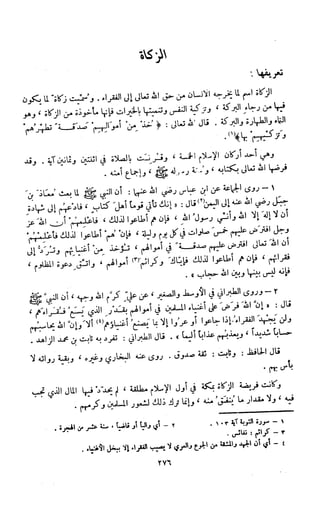 الزكاة
تعريفها :
الزكاة اسم لما يخرجه الانسان من حق الله تعالى إلى الفقراء . وسميت زكاة لما يكون
فيها من رجاء البركة ، وتزكية النفس وتنميتها بالخيرات فإنها مأخوذة من الزكاة ، وهو
النماء والطهارة والبركة . قال الله تعالى : « خذ من أموالهم صدقة تطهرهم
وتزكيهم بها(١) .
وهي أحد أركان الإسلام الخمسة ، وقرنت بالصلاة في اثنتين وثمانين آية . وقد
فرضها الله تعالى بكتابه ، وسنة رسوله ﷺ ، وإجماع أمته .
١ – روى الجماعة عن ابن عباس رضي الله عنهما : أن النبي ﷺ لما بعث معاذ بن
جبل رضي الله عنه إلى اليمن(٢) قال : « إنك تأتي قوماً أهل كتاب ، فادعهم إلى شهادة
أن لا إله إلا الله وأني رسول الله ، فإن هم أطاعوا لذلك ، فأعلمهم أن الله عز
وجل افترض عليهم خمس صلوات في كل يوم وليلة ، فإن هم أطاعوا لذلك فأعلمهم
أن الله تعالى افترض عليهم صدقة في أموالهم ، تؤخذ من أغنيائهم وترد إلى
فقرائهم ، فإن هم أطاعوا لذلك فإياك وكرائم(٣) أموالهم ، واتق دعوة المظلوم ،
فإنه ليس بينها وبين الله حجاب » .
٢ – وروى الطبراني في الأوسط والصغير ، عن علي كرم الله وجهه ، أن النبي ﷺ
قال : « إن الله فرض على أغنياء المسلمين في أموالهم بقدر الذي يسع فقراءهم ،
ولن يجهد الفقراء إذا جاعوا أو عروا إلا بما يصنع أغنياؤهم(٤) ألا وإن الله يحاسبهم
حساباً شديداً ، ويعذبهم عذاباً أليماً » . قال الطبراني : تفرد به ثابت بن محمد الزاهد .
قال الحافظ : وثابت : ثقة صدوق . روى عنه البخاري وغيره ، وبقية رواته لا
بأس بهم .
وكانت فريضة الزكاة بمكة في أول الإسلام مطلقة ، لم يحدد فيها المال الذي تجب
فيه ، ولا مقدار ما ينفق منه ، وإنما ترك ذلك لشعور المسلمين وكرمهم .
١ – سورة التوبة آية ١٠٣ . ٢ – أي والياً أو قاضياً ، سنة عشر من الهجرة .
٣ – كرائم : نفائس .
٤ – أي أن الجهد والمشقة من الجوع والعري لا يصيب الفقراء إلا ببخل الأغنياء .
٢٧٦